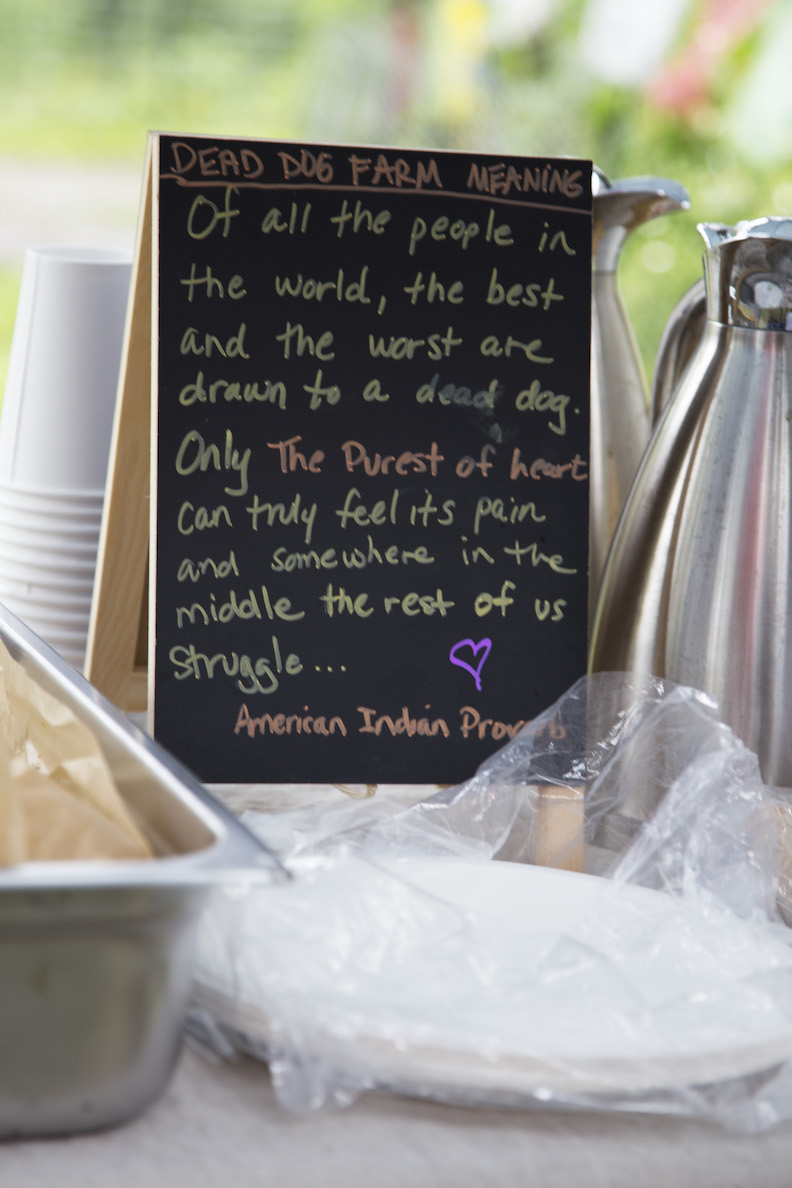 DEAD DOG FARM MEANING
Of all the people in
the world, the best
and the worst are
drawn to a dead dog.
Only The Purest of heart
can truly feel its pain
and somewhere in the
middle the rest of us
struggle...
American Indian Proverb